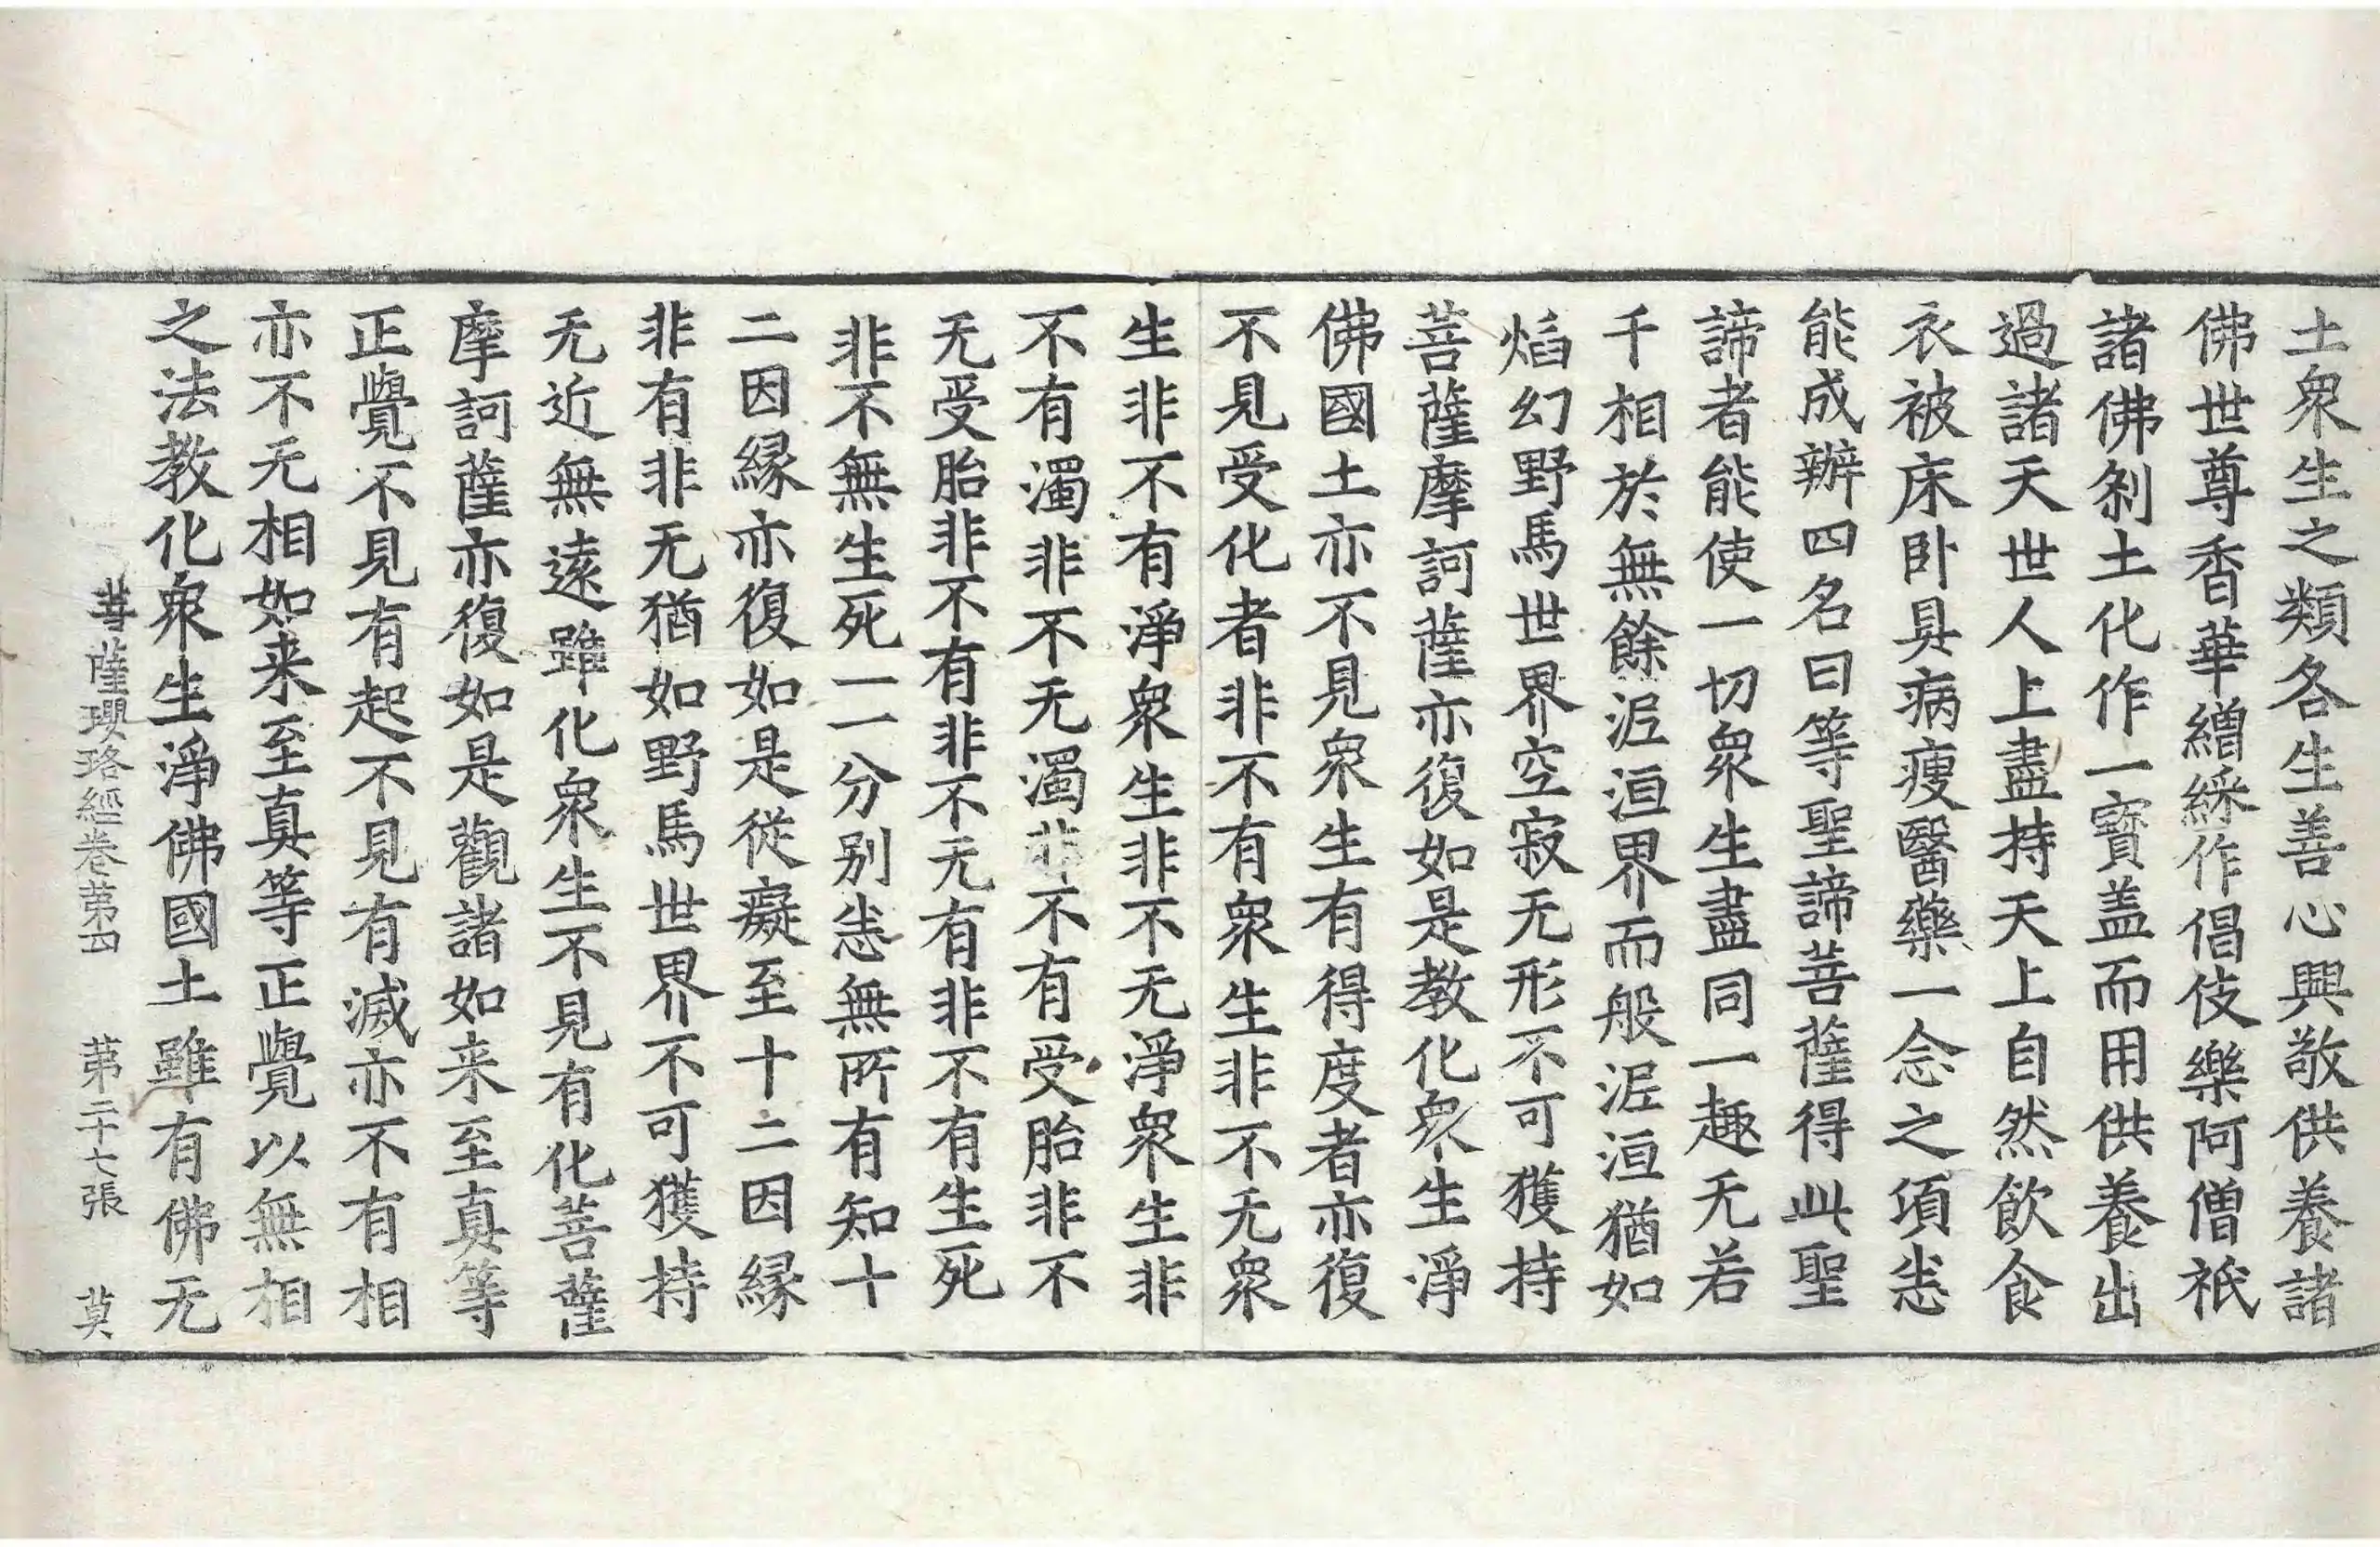 土衆生之類各生善心興敬供養諸
佛世尊香華繒綵作倡伎樂阿僧祇
諸佛剎土化作一寶盖而用供養出
過諸天世人上盡持天上自然飲食
衣被床卧具病瘦醫藥一念之頃悉
能成辦四名曰等聖諦菩薩得此聖
諦者能使一切衆生盡同一趣无若
千相於無餘泥洹界而般泥洹猶如
焰幻野馬世界空寂无形不可獲持
菩薩摩訶薩亦復如是教化衆生淨
佛國土亦不見衆生有得度者亦復
不見受化者非不有衆生非不无衆
生非不有淨衆生非不无淨衆生非
不有濁非不无濁非不有受胎非不
无受胎非不有非不无有非不有生死
非不無生死一一分别悉無所有知十
二因縁亦復如是從癡至十二因縁
非有非无猶如野馬世界不可獲持
无近無遠雖化衆生不見有化菩薩
摩訶薩亦復如是觀諸如来至真等
正覺不見有起不見有滅亦不有相
亦不无相如来至真等正覺以無相
之法教化衆生淨佛國土雖有佛无
菩薩瓔珞經卷第四 第二十七張 莫